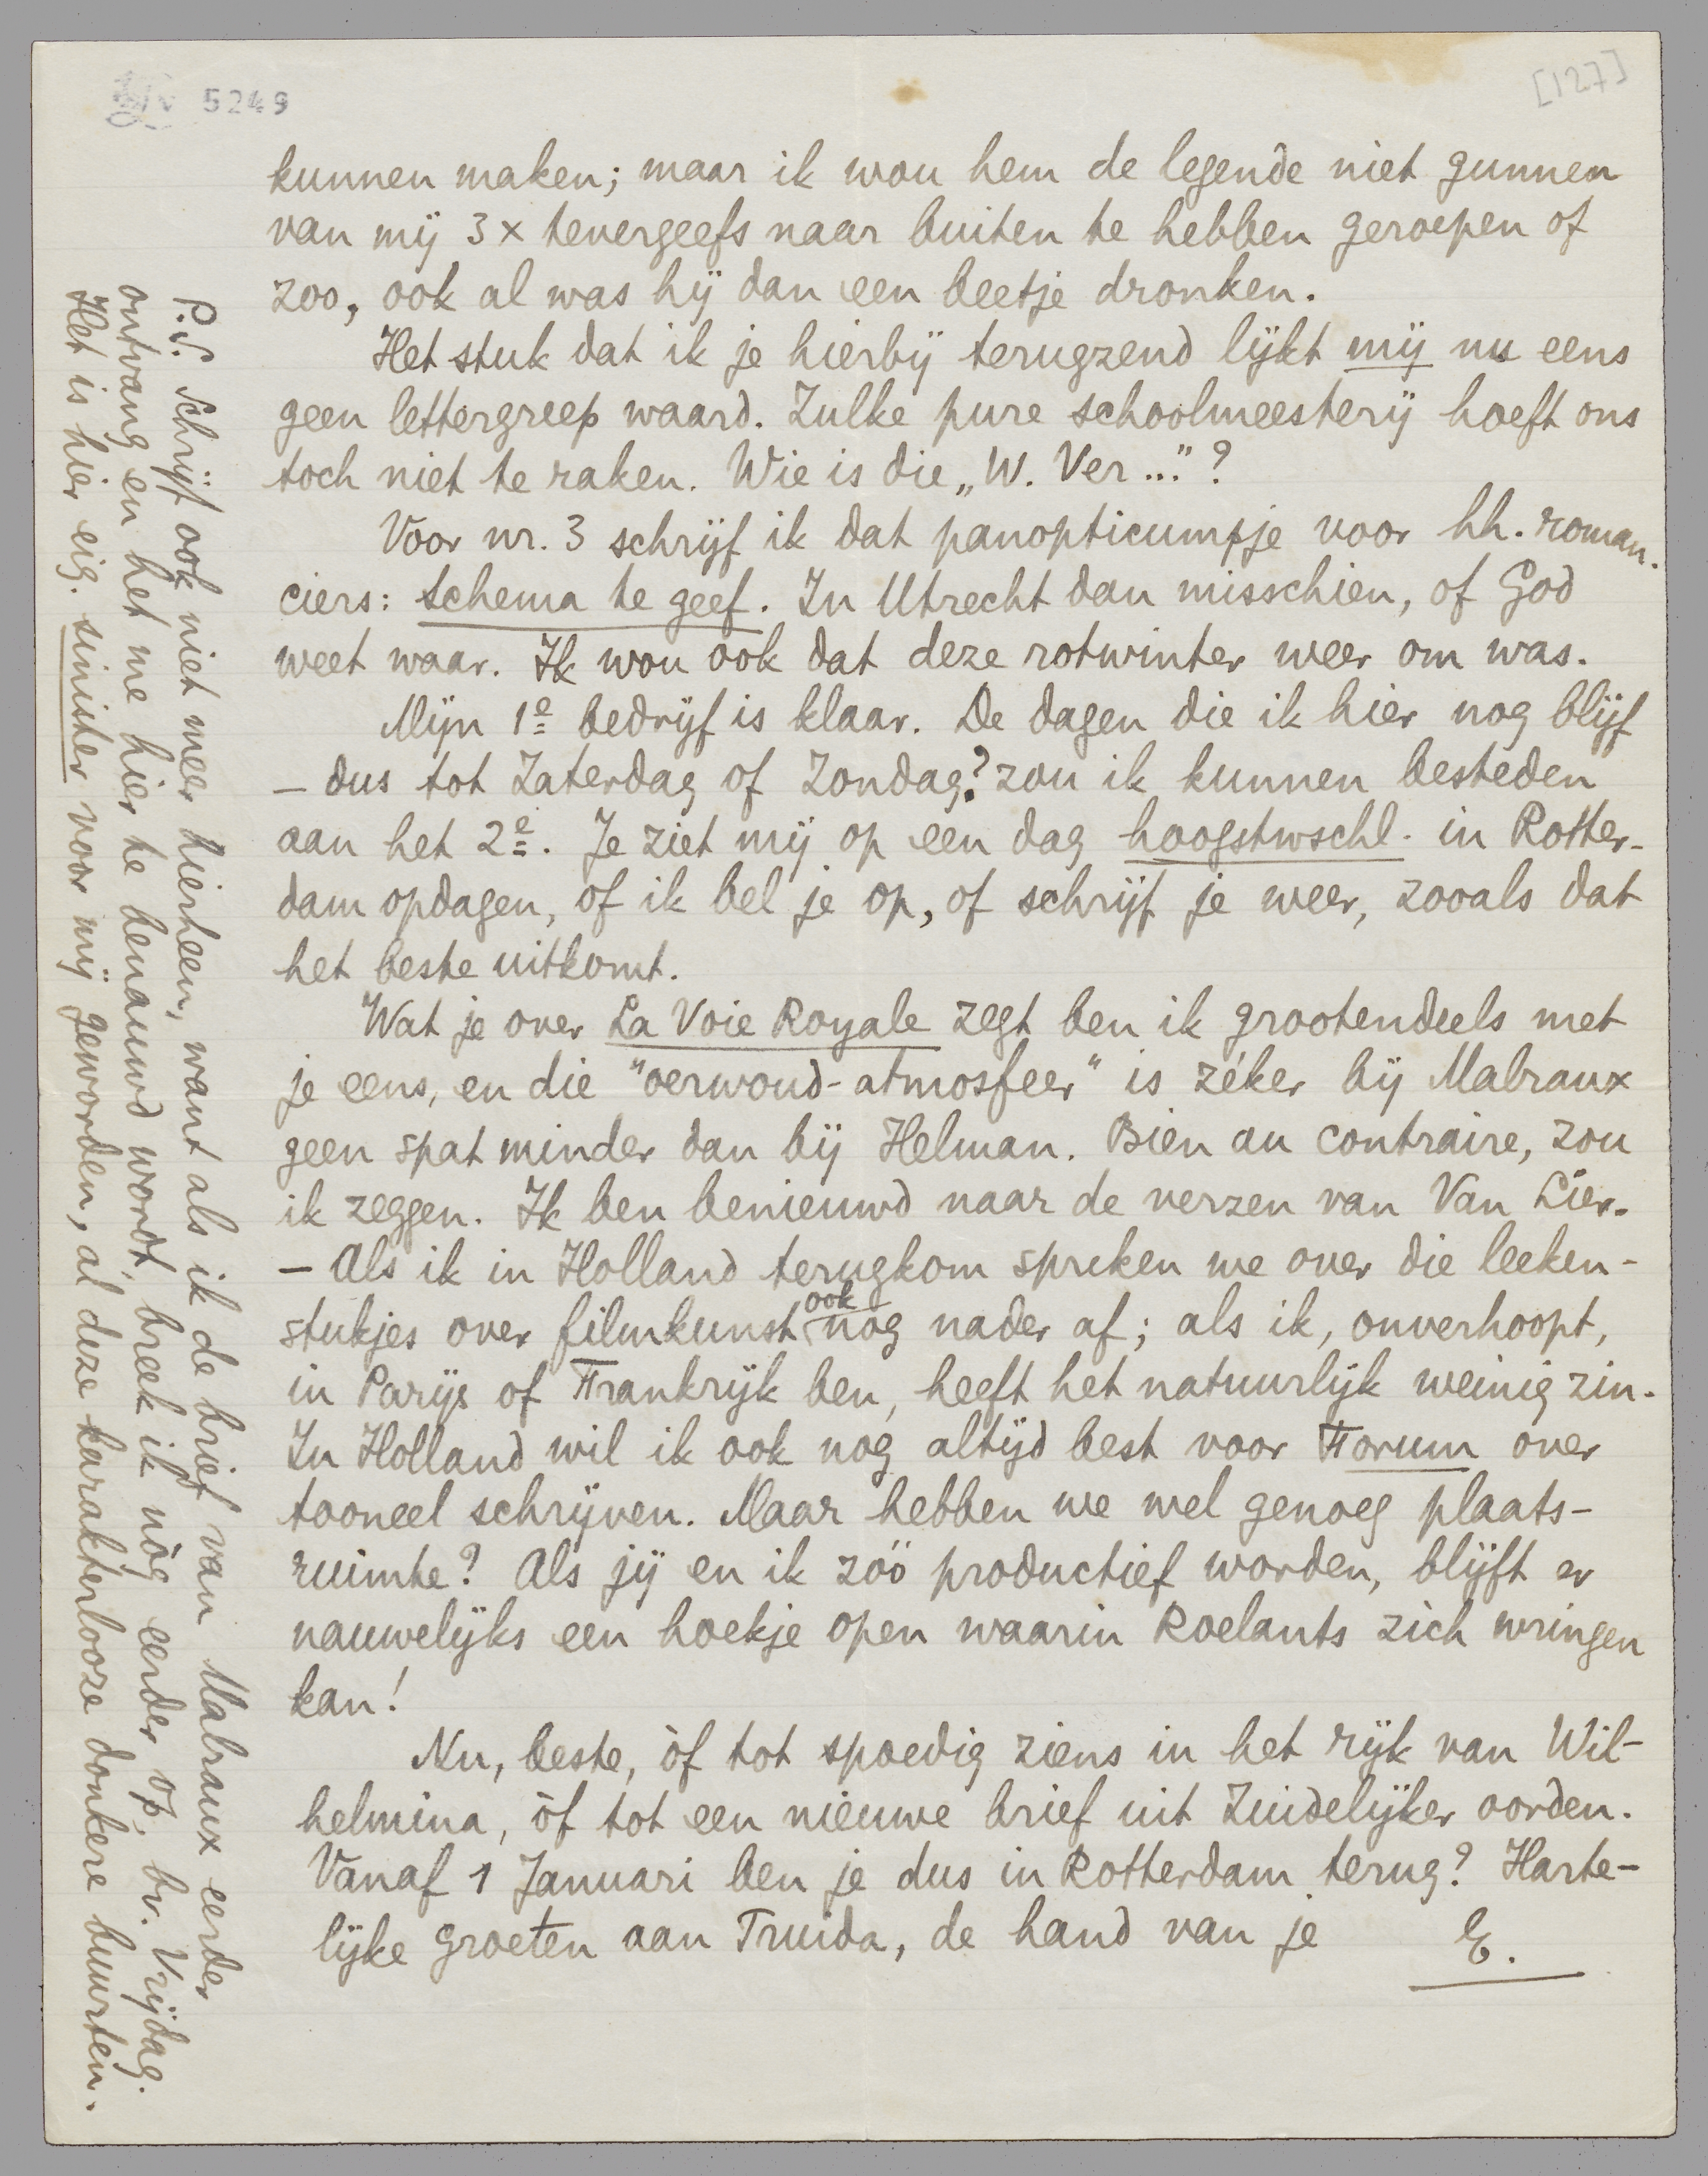 5249
[127]
kunnen maken; maar ik wou hem de legende niet gunnen
van mij 3 x tevergeefs naar buiten te hebben geroepen of
zoo, ook al was hij dan een beetje dronken.
Het stuk dat ik je hierbij terugzend lijkt mij nu eens
geen lettergreep waard. Zulke pure schoolmeesterij hoeft ons
toch niet te raken. Wie is die „W. Ver..." ?
Voor nr. 3 schrijf ik dat panopticumpje voor hh. roman-
ciers: schema te geef. In Utrecht dan misschien, of God
weet waar. Ik wou ook dat deze rotwinter weer om was.
Mijn 1e bedrijf is klaar. De dagen die ik hier nog blijf
– dus tot Zaterdag of Zondag? zou ik kunnen besteden
aan het 2e. Je ziet mij op een dag hoogstwschl. in Rotter-
dam opdagen, of ik bel je op, of schrijf je weer, zooals dat
het beste uitkomt.
Wat je over La Voie Royale zegt ben ik grootendeels met
je eens, en die "oerwoud-atmosfeer" is zéker bij Malraux
geen spat minder dan bij Helman. Bien au contraire, zou
ik zeggen. Ik ben benieuwd naar de verzen van Van Lier.
– Als ik in Holland terugkom spreken we over die leeken-
stukjes over filmkunst ook nog nader af; als ik, onverhoopt,
in Parijs of Frankrijk ben, heeft het natuurlijk weinig zin.
In Holland wil ik ook nog altijd best voor Forum over
tooneel schrijven. Maar hebben we wel genoeg plaats-
ruimte? Als jij en ik zóó productief worden, blijft er
nauwelijks een hoekje open waarin Roelants zich wringen
kan!
Nu, beste, òf tot spoedig ziens in het rijk van Wil-
helmina, òf tot een nieuwe brief uit Zuidelijker oorden.
Vanaf 1 Januari ben je dus in Rotterdam terug? Harte-
lijke groeten aan Truida, de hand van je E.
P.S. Schrijf ook niet meer hierheen, want als ik de brief van Malraux eerder
ontvang en het me hier te benauwd wordt, breek ik nòg eerder op, bv. Vrijdag.
Het is hier eig. sinister voor mij geworden, al deze karakterlooze donkere buurten.